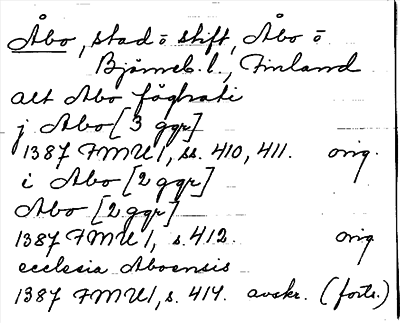 Åbo, stad o stift, Åbo o
Björneb. l., Finland
alt Abo föghati
j Abo [3 ggr]
1387 FMU 1, ss. 410, 411. orig.
i Abo [2 ggr]
Abo [2 ggr]
1387 FMU 1, s. 412. orig.
ecclesia Aboensis
1387 FMU 1, s. 414. avskr. (forts.)